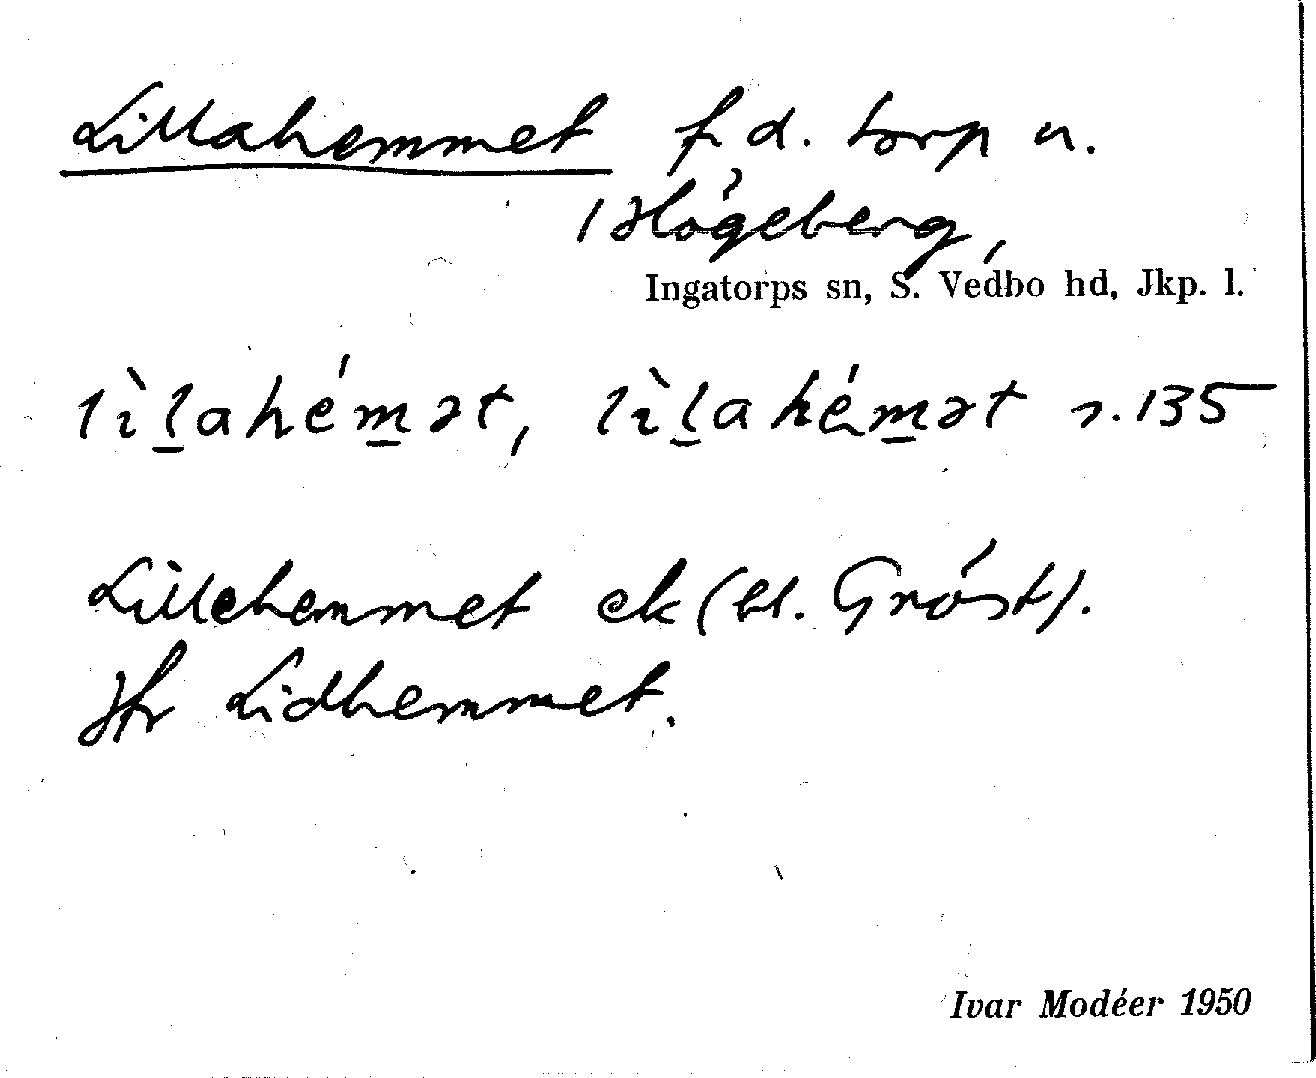 Lillahemmet f.d. torp u.
/ Högeberg,
Ingatorps sn, S. Vedbo hd, Jkp. l.
lìl̲ahém̲ət, lìl̲ahém̲ət s. 135
Lillehemmet ek (bl. Gröst).
Jfr Lidhemmet.
Ivar Modéer 1950